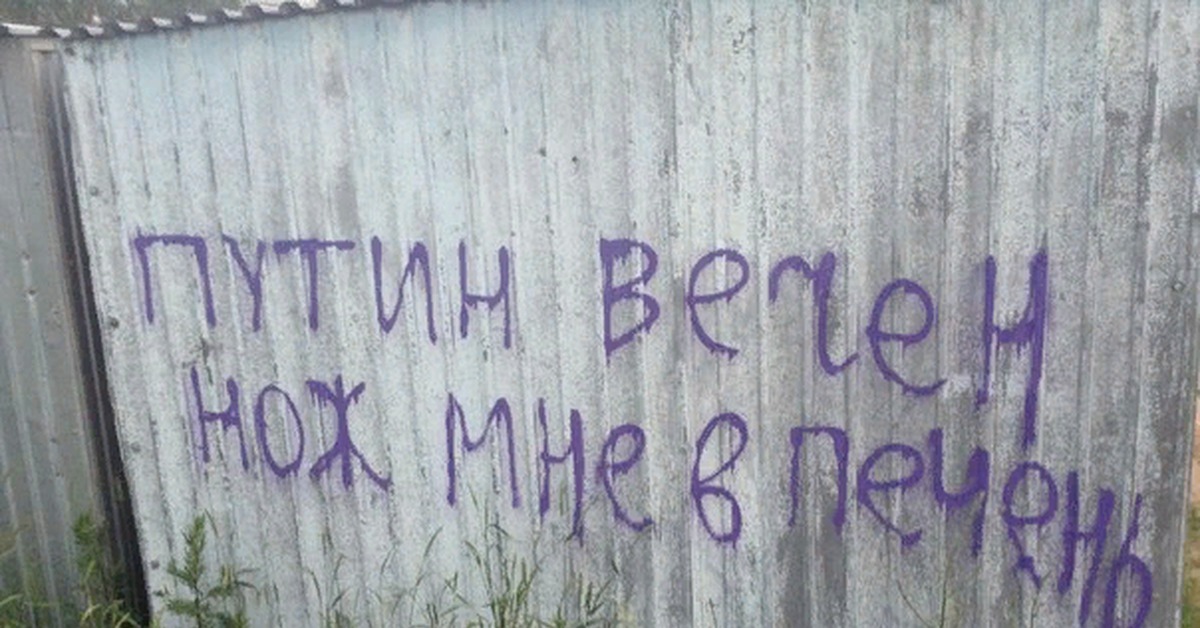 ПУТИН вечен
нож мне в печень